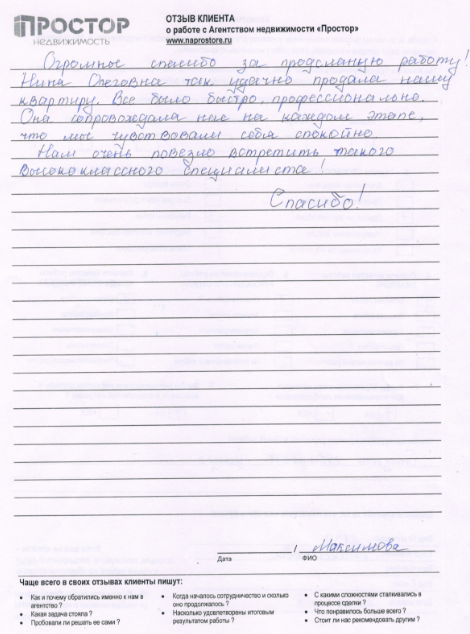 ПРОСТОР
НЕДВИЖИМОСТЬ
ОТЗЫВ КЛИЕНТА
о работе с Агентством недвижимости «Простор»
www.naprostore.ru
Огромное спасибо за проделанную работу!
Нина Олеговна так удачно продала нашу
квартиру. Все было быстро, профессионально.
Она сопровождала нас на каждом этапе,
что мы чувствовали себя спокойно
Нам очень повезло встретить такого
высококлассного специалиста!
Спасибо!
/ Максимова
Дата ФИО
Чаще всего в своих отзывах клиенты пишут:
• Как и почему обратились именно к нам в
агентство ?
• Какая задача стояла ?
• Пробовали ли решать ее сами ?
• Когда началось сотрудничество и сколько
оно продолжалось ?
• Насколько удовлетворены итоговым
результатом работы ?
• С какими сложностями сталкивались в
процессе сделки ?
• Что понравилось больше всего ?
• Стоит ли нас рекомендовать другим ?